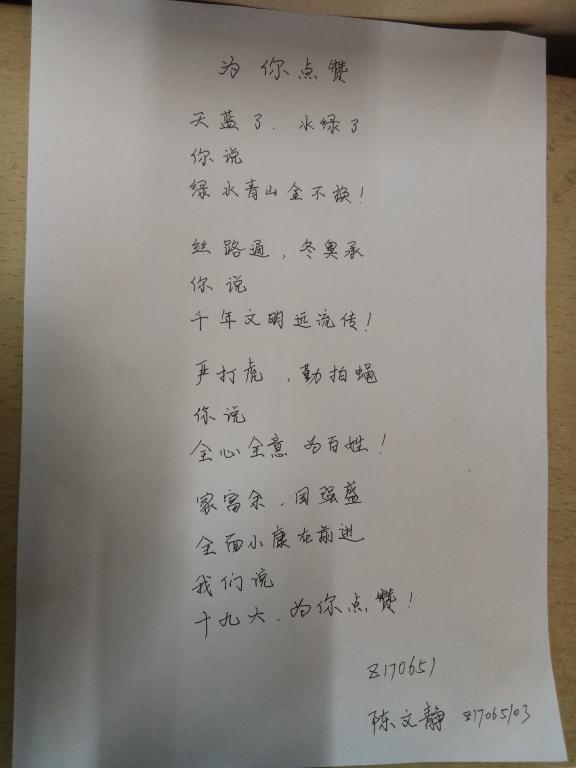 为你点赞
天蓝了，水绿了
你说
绿水青山金不换！
丝路通，冬奥承
你说
千年文明远流传！
严打虎，勤拍蝇
你说
全心全意为百姓！
家富余，国强盛
全面小康在前进
我们说
十九大，为你点赞！
Z170651
陈文静 Z17065103